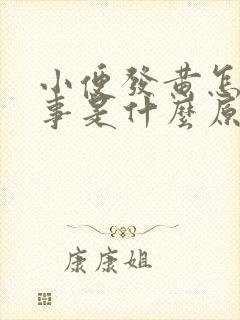 小便發黄怎
事是什麼原
康康姐